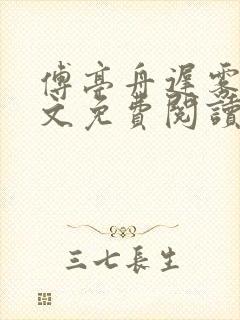 傅亭舟遲霧
文免費閱讀
三七長生